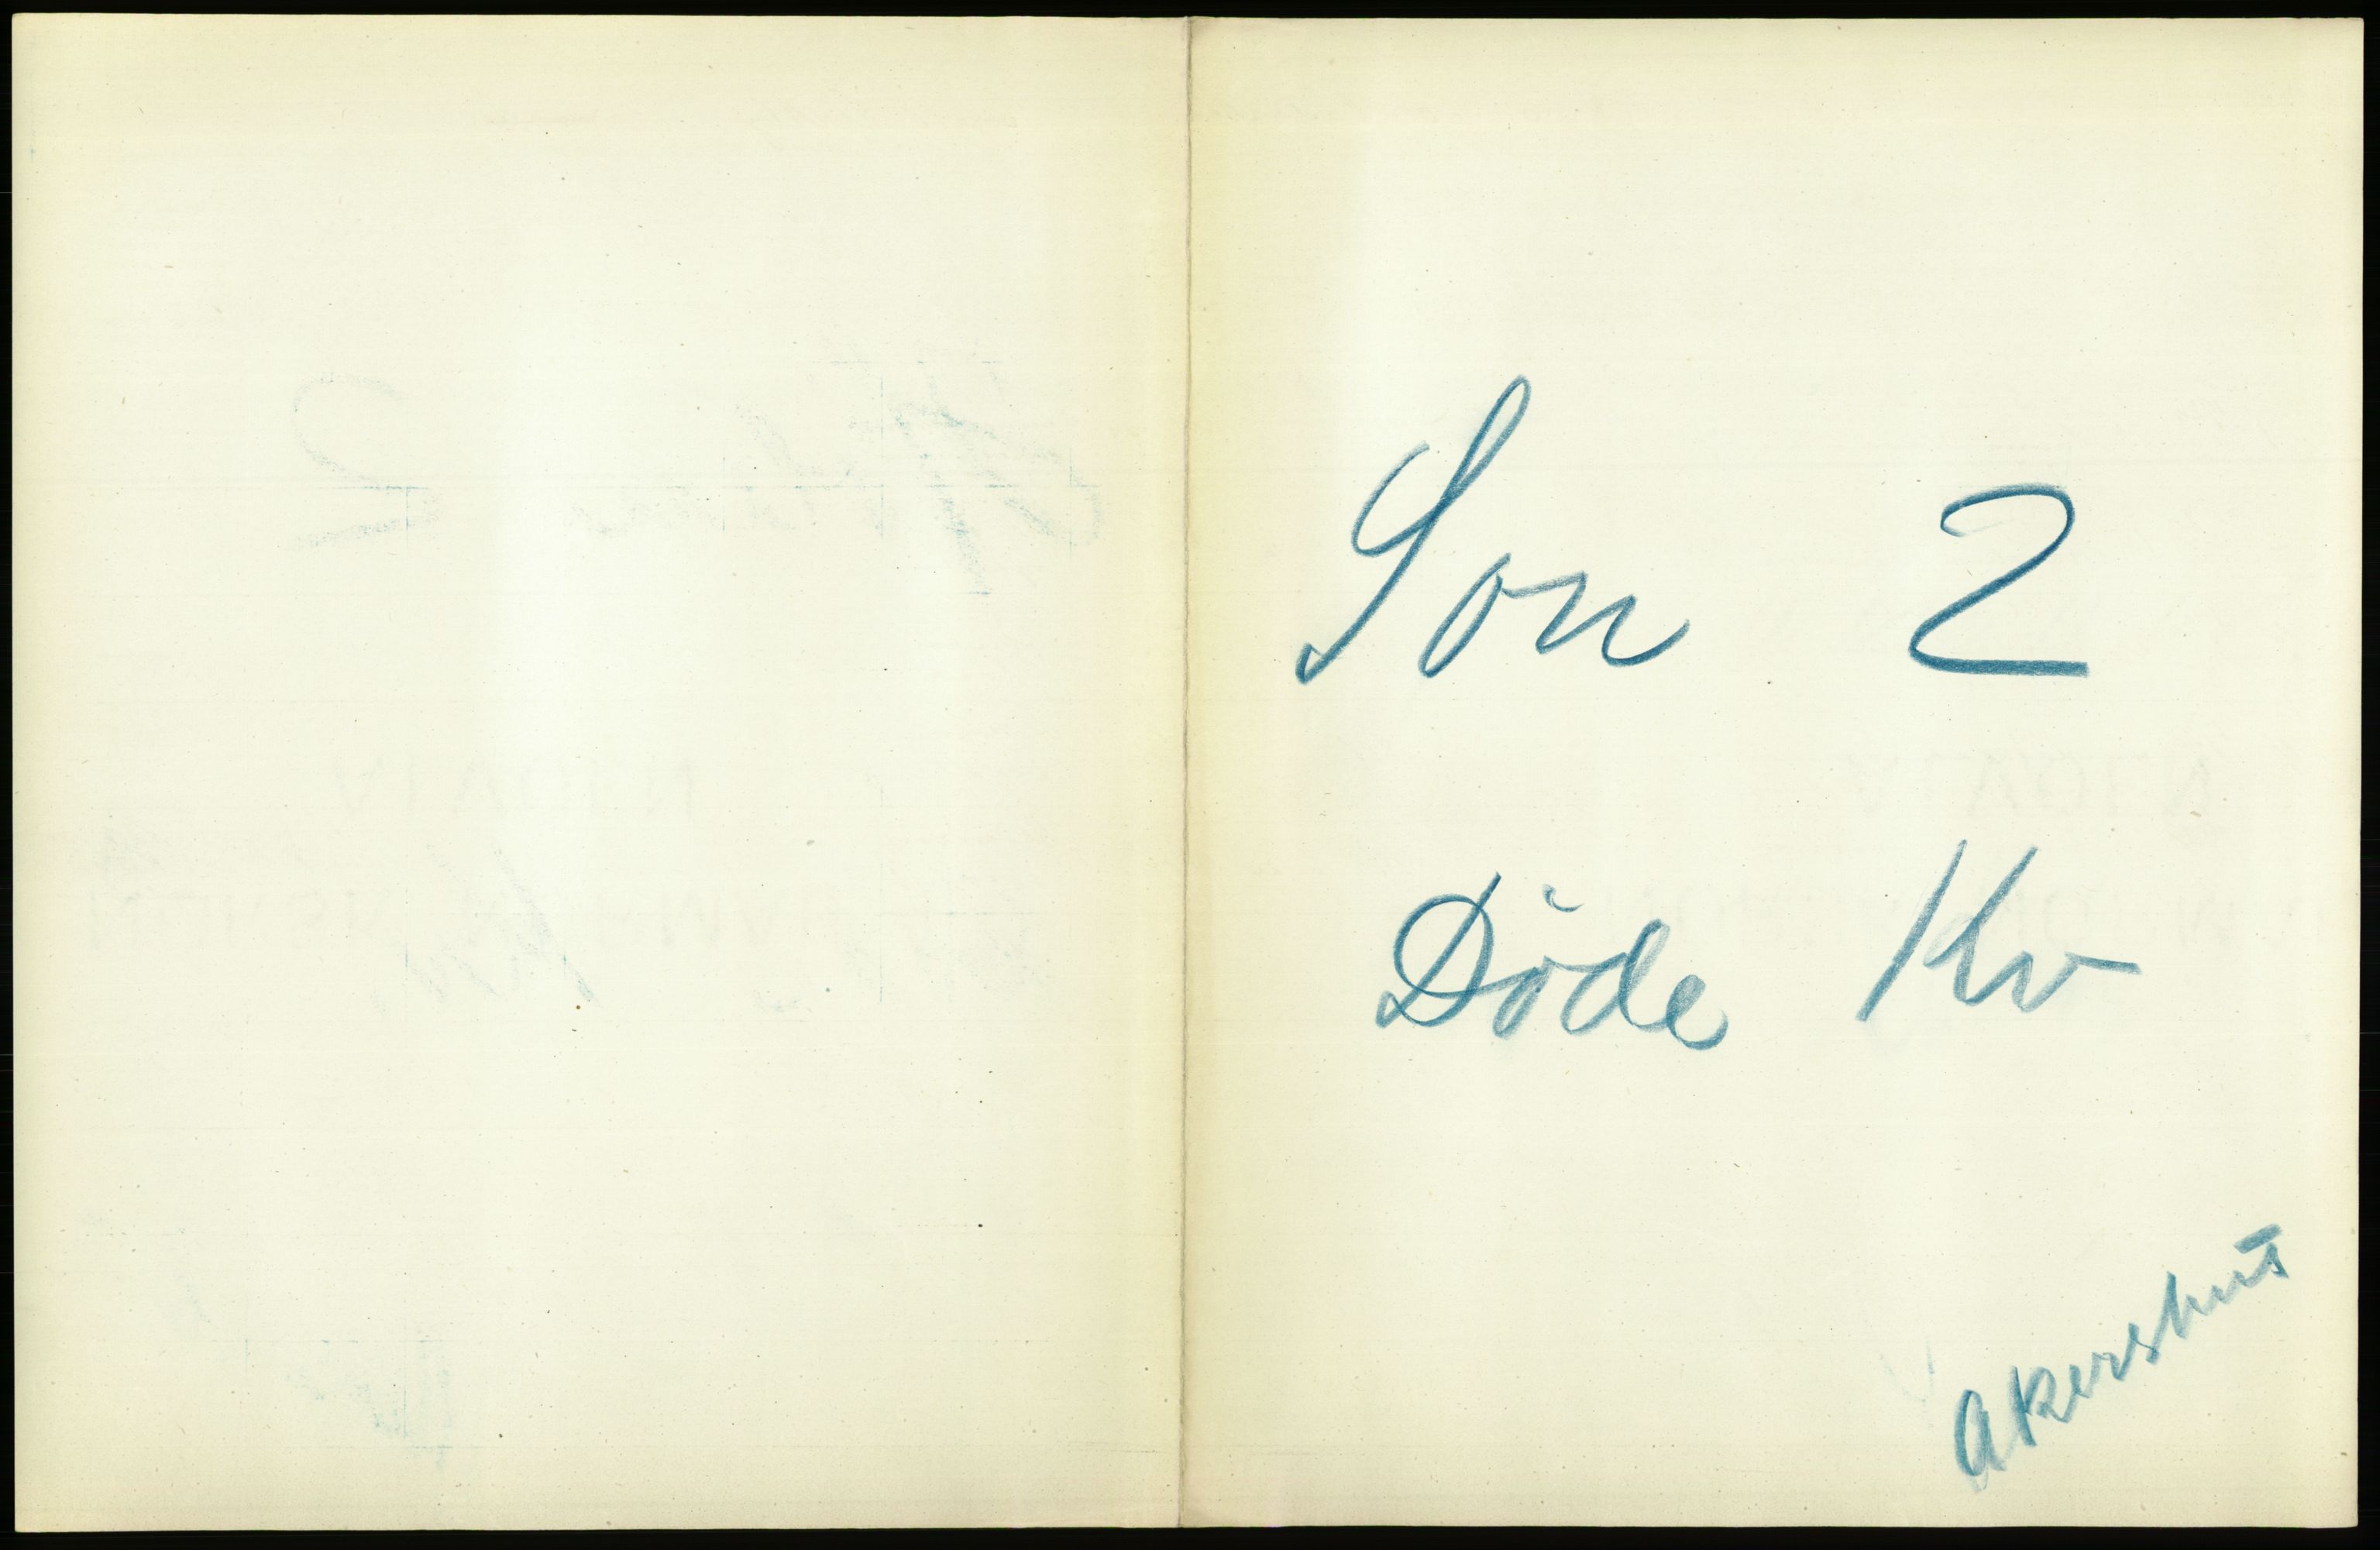 Son 2
Døde Kv
Akershus